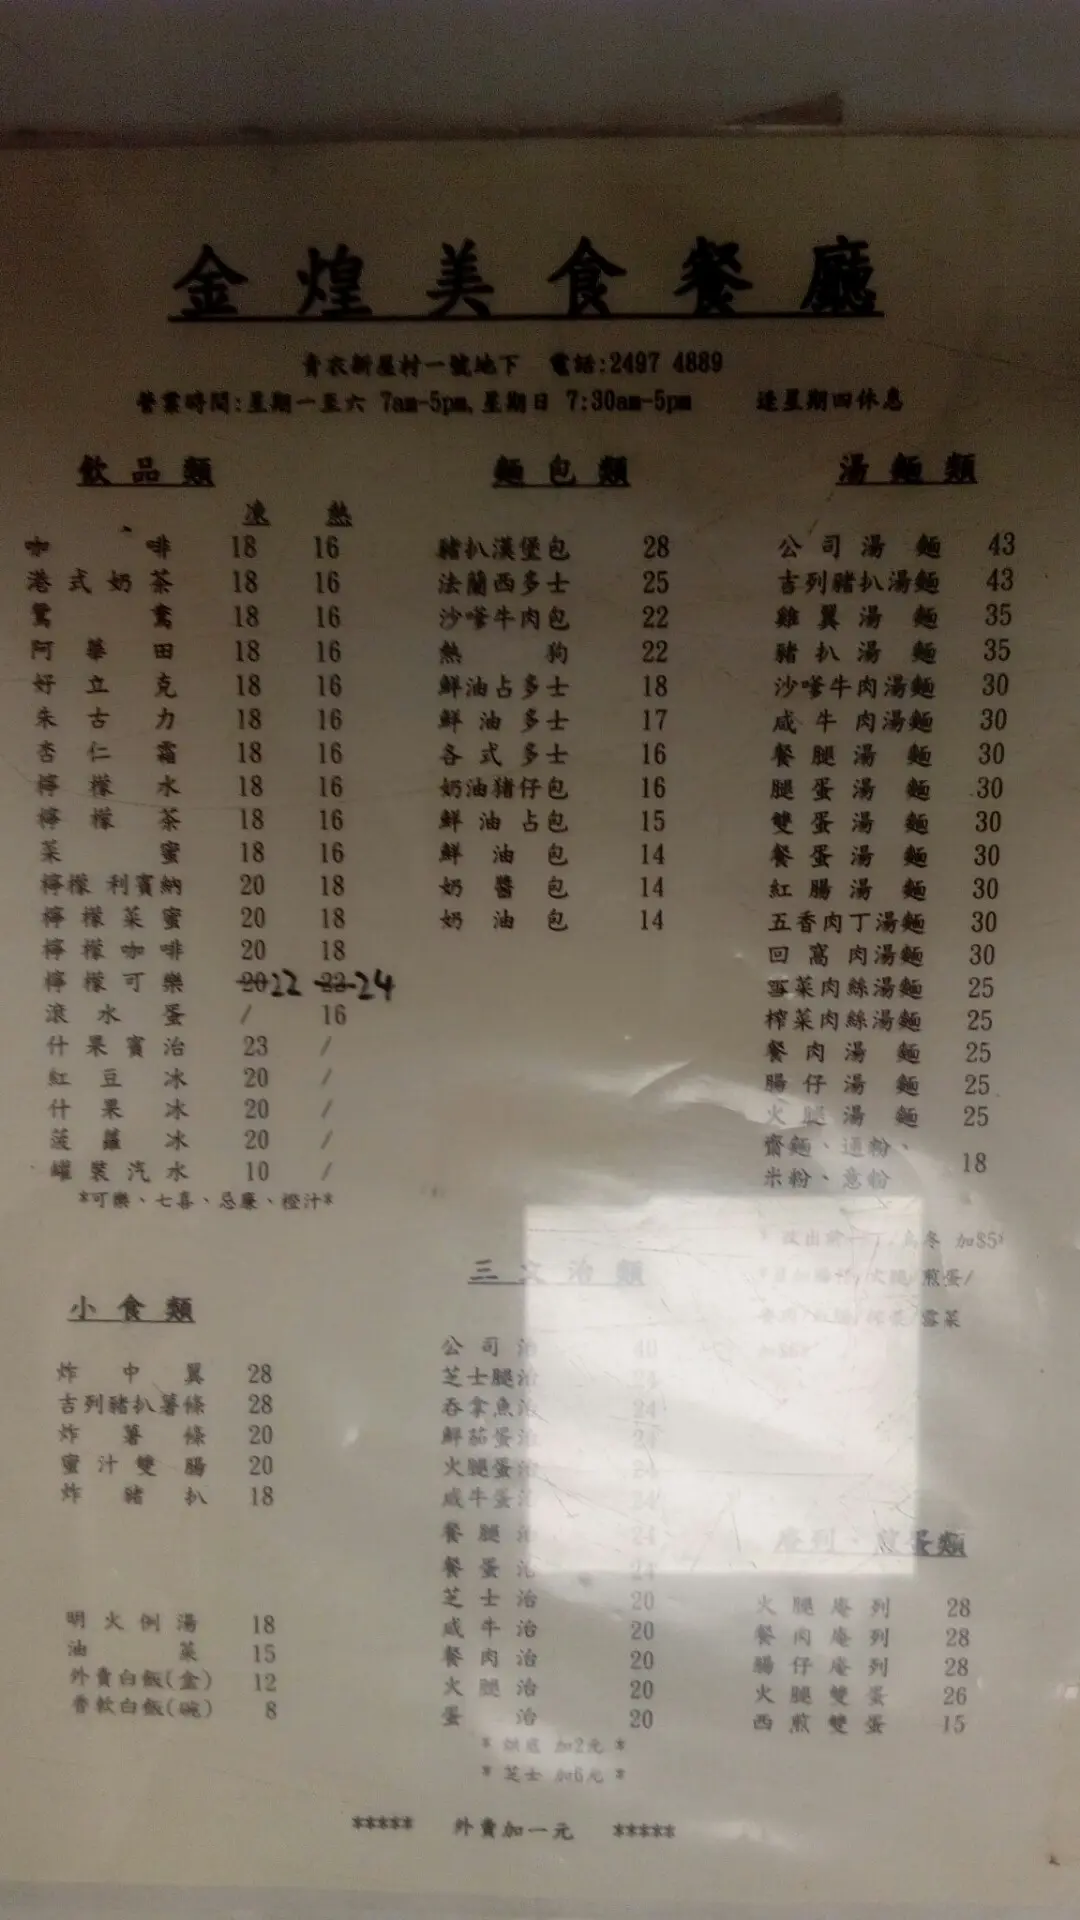 金煌美食餐廳
青衣新屋村一號地下 電話:2497 4889
營業時間:星期一至六 7am-5pm,星期日 7:30am-5pm 逢星期四休息
飲品類
凍 熱
咖啡 18 16
港式奶茶 18 16
鴛鴦 18 16
阿華田 18 16
好立克 18 16
朱古力 18 16
杏仁霜 18 16
檸檬水 18 16
檸檬茶 18 16
菜蜜 18 16
檸檬利賓納 20 18
檸檬菜蜜 20 18
檸檬咖啡 20 18
檸檬可樂 20 22 22 24
滾水蛋 / 16
什果賓治 23 /
紅豆冰 20 /
什果冰 20 /
菠蘿冰 20 /
罐裝汽水 10 /
*可樂、七喜、忌廉、橙汁*
麵包類
豬扒漢堡包 28
法蘭西多士 25
沙嗲牛肉包 22
熱狗 22
鮮油占多士 18
鮮油多士 17
各式多士 16
奶油猪仔包 16
鮮油占包 15
鮮油包 14
奶醬包 14
奶油包 14
湯麵類
公司湯麵 43
吉列豬扒湯麵 43
雞翼湯麵 35
豬扒湯麵 35
沙嗲牛肉湯麵 30
咸牛肉湯麵 30
餐腿湯麵 30
腿蛋湯麵 30
雙蛋湯麵 30
餐蛋湯麵 30
紅腸湯麵 30
五香肉丁湯麵 30
回窩肉湯麵 30
雪菜肉絲湯麵 25
榨菜肉絲湯麵 25
餐肉湯麵 25
腸仔湯麵 25
火腿湯麵 25
齋麵、通粉、
米粉、意粉 18
出前一丁 烏冬 加$5
火腿/煎蛋/
雪菜
小食類
炸中翼 28
吉列豬扒薯條 28
炸薯條 20
蜜汁雙腸 20
炸豬扒 18
明火例湯 18
油菜 15
外賣白飯(盒) 12
香軟白飯(碗) 8
三文治類
公司治 40
芝士腿治 24
吞拿魚治 24
鮮茄蛋治 24
火腿蛋治 24
咸牛蛋治 24
餐腿治 24
餐蛋治 24
芝士治 20
咸牛治 20
餐肉治 20
火腿治 20
蛋治 20
* 烘底 加2元 *
* 芝士 加6元 *
奄列、煎蛋類
火腿奄列 28
餐肉奄列 28
腸仔奄列 28
火腿雙蛋 26
西煎雙蛋 15
***** 外賣加一元 *****